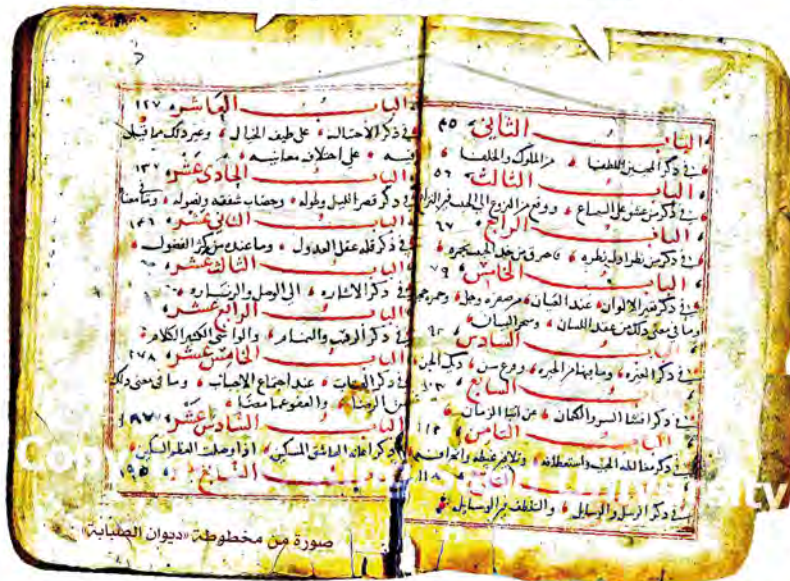 الباب الثاني ٤٥
في ذكر المحبين اللطفا من الملوك والخلفا
الباب الثالث ٥٦
في ذكر من عشق على السماع ووقع من النزوع الى الحبيب في النزاع
الباب الرابع ٦٧
في ذكر من نظر اول نظره فاحترق من خد الحبيب بجمره
الباب الخامس ٧٩
في ذكر تغير الالوان عند العيان من صفرة وجل وحمرة خجل
وما في معنى ذلك من عقد اللسان وسحر البيان
الباب السادس ٩٢
في ذكر الغيره وما فيها من الحيره
الباب السابع ١٠٣
في ذكر افشا السر والكتمان عن ابنا الزمان
الباب الثامن ١١٢
في ذكر مغالطة الحبيب واستعطافه وتلافي غيظه وانحرافه
الباب ١١٨
في ذكر الرسل والرسايل والتلطف في الوسايل
الباب العاشر ١٢٧
في ذكر الاحتيال على طيف الخيال وغير ذلك مما قيل
فيه على اختلاف معانيه
الباب الحادي عشر ١٣٢
في ذكر قصر الليل وطوله وخضاب شفقه ونصوله وما في معناه
الباب الثاني عشر ١٤٦
في ذكر قلة عقل العذول وما عنده من كثرة الفضول
الباب الثالث عشر
في ذكر الاشاره الى الوصل والزياره
الباب الرابع عشر
في ذكر الرقيب والنمام والواشي الكثير الكلام
الباب الخامس عشر ١٧٨
في ذكر العتاب عند اجتماع الاحباب وما في معنى ذلك
من الرضا والعفو عما مضى
الباب السادس عشر ١٨٧
في ذكر اغاثة العاشق المسكين اذا وصلت العظم السكين
الباب السابع ١٩٥
صورة من مخطوطة «ديوان الصبابة»
University